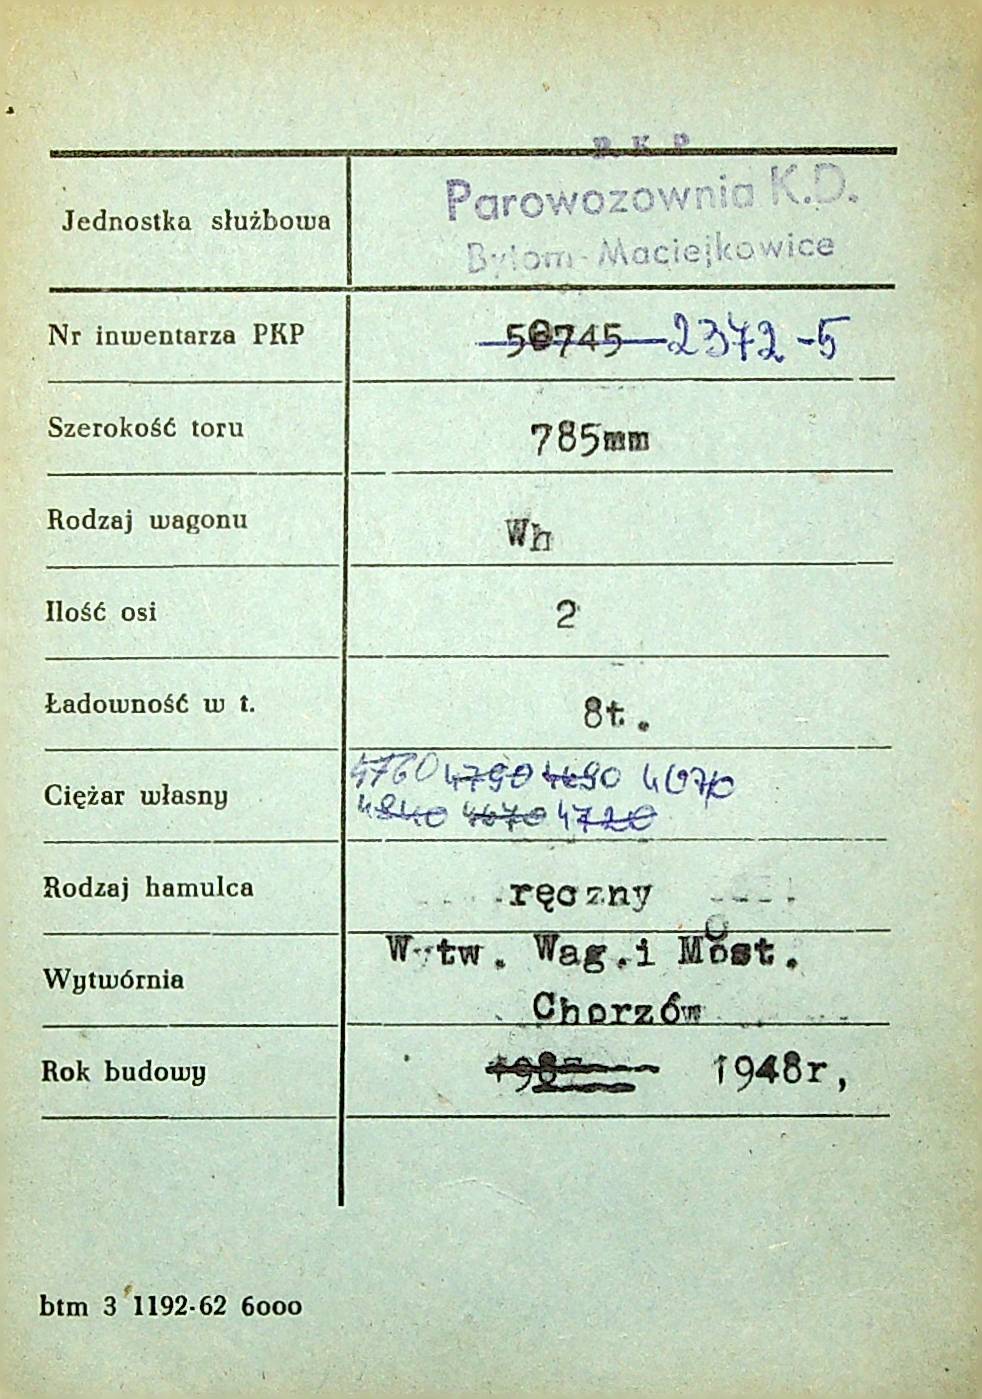 P K P
Jednostka służbowa Parowozownia K.D.
Bytom-Maciejkowice
Nr inwentarza PKP 50745 2372-5
Szerokość toru 785mm
Rodzaj wagonu Wh
Ilość osi 2
Ładowność w t. 8t.
Ciężar własny 4760 4790 4690 4670
4840 4670 4720
Rodzaj hamulca ręczny
Wytwórnia Wytw. Wag.i Most.
Chorzów
Rok budowy 1948r,
btm 3 1192-62 6000